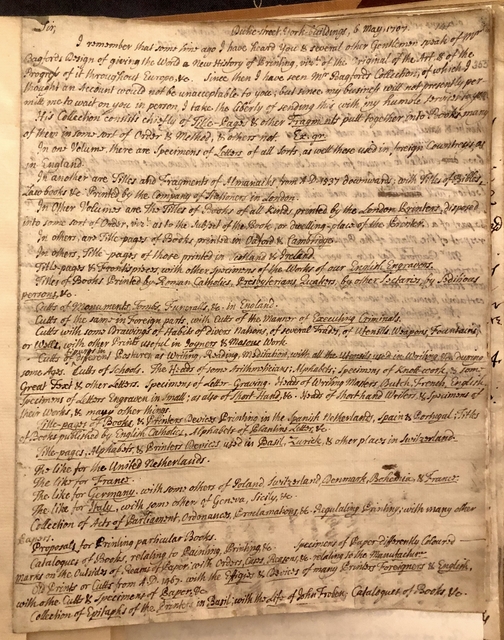 Sir,
Duke-street York-Buildings, 6 May. 1707.
I remember that some time ago I have heard You & several other Gentlemen speak of Mr
Bagfords Design of giving the World a New History of Printing, viz. of the Original of the Art, & of the
Progress of it throughout Europe, &c. Since then I have seen Mr Bagfords Collection, of which I
thought an Account would not be unacceptable to you; but since my business will not presently per-
mitt me to wait on you in person, I take the liberty of sending this with my humble service
His Collection consists chiefly of Title-Pages & other Fragments putt together into Books, many
of them in some sort of Order & Method, & others not. Ex. gr.
In one Volume, there are Specimens of Letters of all Sorts, as well those used in foreign Countries, as
in England.
In another are Titles and Fragments of Almanacks from A.D. 1537 downwards, with Titles of Bibles,
Law books &c Printed by the Company of Stationers in London.
In Other Volumes are the Titles of Books of all Kinds printed by the London-Printers, disposed
into some sort of Order, viz. as to the Subject of the Book, or dwelling-place of the
In others, are Title-pages of Books, printed in Oxford & Cambridge.
In others, Title-pages of those printed in Scotland & Ireland.
Title-pages & Frontispieces, with other Specimens of the Works of our English Engravers.
Titles of Books Printed by Roman Catholics, Presbyterians, Quakers, by other Sectaries, by Seditious
persons, &c.
Cutts of Monuments, Funeralls, &c. in England.
Cutts of the same in Foreign parts, with Cutts of the Manner of Executing Criminals.
Cutts with some Drawings of Habits of Divers Nations, of severall Trades, of Utensils, Weapons, Fountains,
or Wells, with other Prints usefull in Joyners & Masons Work.
Cutts of Postures as Writing, Reading, Meditation, with all the Utensils used in Writing the during
some Ages. Cutts of Schools. The Heads of some Arithmeticians; Alphabets; Specimens of Knott-work, & some
Great Text & other Letters. Specimens of Letter-Graving. Heads of Writing Masters, Dutch, French, English,
Specimens of Letters Engraven in Small; as also of Short-Hand &c. Heads of Short hand Writers. & Specimens of
their Works, & many other things.
Title-pages of Books, & Printers Devices Printed in the Spanish Netherlands, Spain & Portugal: Titles
of Books published by English Catholics, Alphabets of Plantins Letter, &c.
Title-pages, Alphabets, & Printers Devices used in Basil, Zurick, & other places in Switzerland.
The Like for the United Netherlands.
The like for France.
The like for Germany, with some others of Poland Switzerland Denmark, Bohemia, & France.
The like for Italy, with some others of Geneva, Sicily, &c.
Collection of Acts of Parliament, Ordonances, Proclamations, &c. Regulating Printing, with many other
Papers.
Proposals for Printing particular Books.
Catalogues of Books, relating to Painting, Printing, &c. Specimens of Paper Differently Coloured
Marks on the Outsides of Reams of Paper, with Orders, Cases, Reasons, &c. relating to the Manufacture
Old Prints or Cutts from A.D. 1467. with the Effigies & Devices of many Printers Foreigners & English,
with the Cutts & Specimens of Paper, &c.
Collection of Epitaphs of the Printers in Basil; with the Life of John Froben; Catalogues of Books &c.